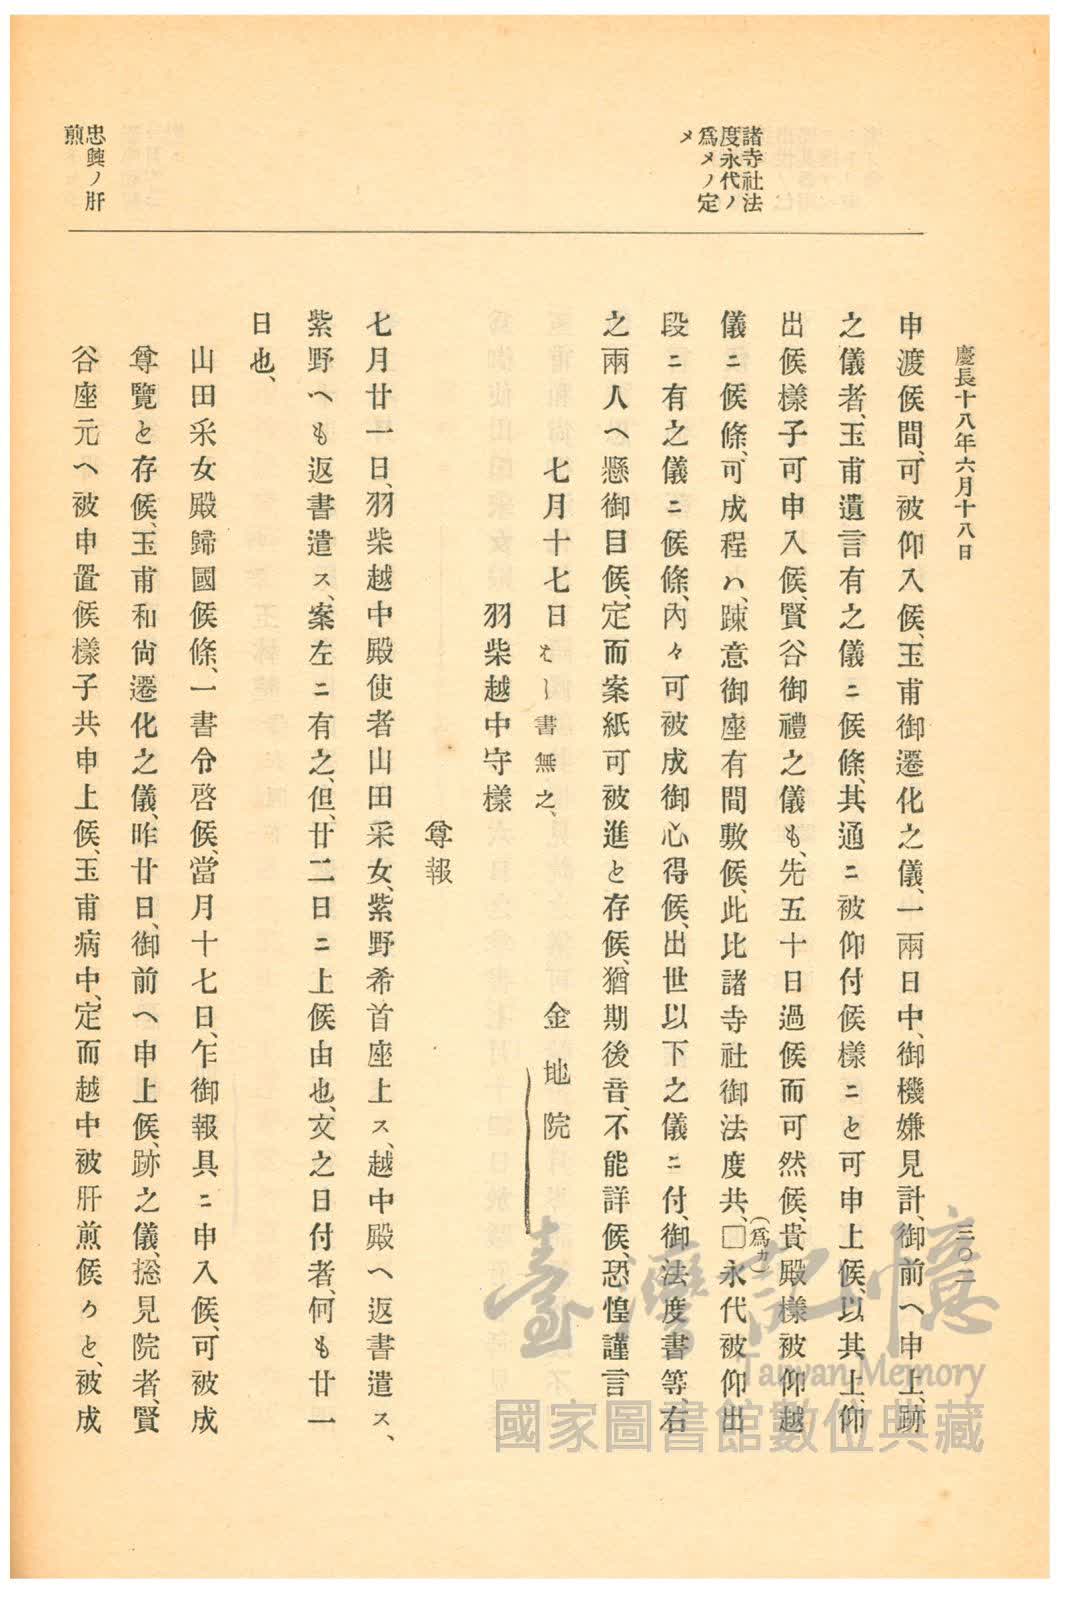 慶長十八年六月十八日
三〇二
諸寺社法
度永代ノ
爲メノ定
メ
忠興ノ肝
煎
申渡候間、可被仰入候、玉甫御遷化之儀、一兩日中、御機嫌見計、御前ヘ申上、跡
之儀者、玉甫遺言有之儀ニ候條、其通ニ被仰付候樣ニと可申上候、以其上、仰
出候樣子可申入候、賢谷御禮之儀も、先五十日過候而可然候、貴殿樣被仰越
儀ニ候條、可成程ハ、踈意御座有間敷候、此比諸寺社御法度共、□(爲カ)永代被仰出
段ニ有之儀ニ候條、內々可被成御心得候、出世以下之儀ニ付、御法度書等、右
之兩人ヘ懸御目候、定而案紙可被進と存候、猶期後音、不能詳候、恐惶謹言
七月十七日 はし書無之、 金地院
羽柴越中守樣
尊報
七月廿一日、羽柴越中殿使者山田采女、紫野希首座上ス、越中殿ヘ返書遣ス、
紫野ヘも返書遣ス、案左ニ有之、但、廿二日ニ上候由也、文之日付者、何も廿一
日也、
山田采女殿歸國候條、一書令啓候、當月十七日、乍御報具ニ申入候、可被成
尊覽と存候、玉甫和尙遷化之儀、昨廿日、御前ヘ申上候、跡之儀、捴見院者、賢
谷座元ヘ被申置候樣子共申上候、玉甫病中、定而越中被肝煎候うと、被成
臺灣記憶
Taiwan Memory
國家圖書館數位典藏